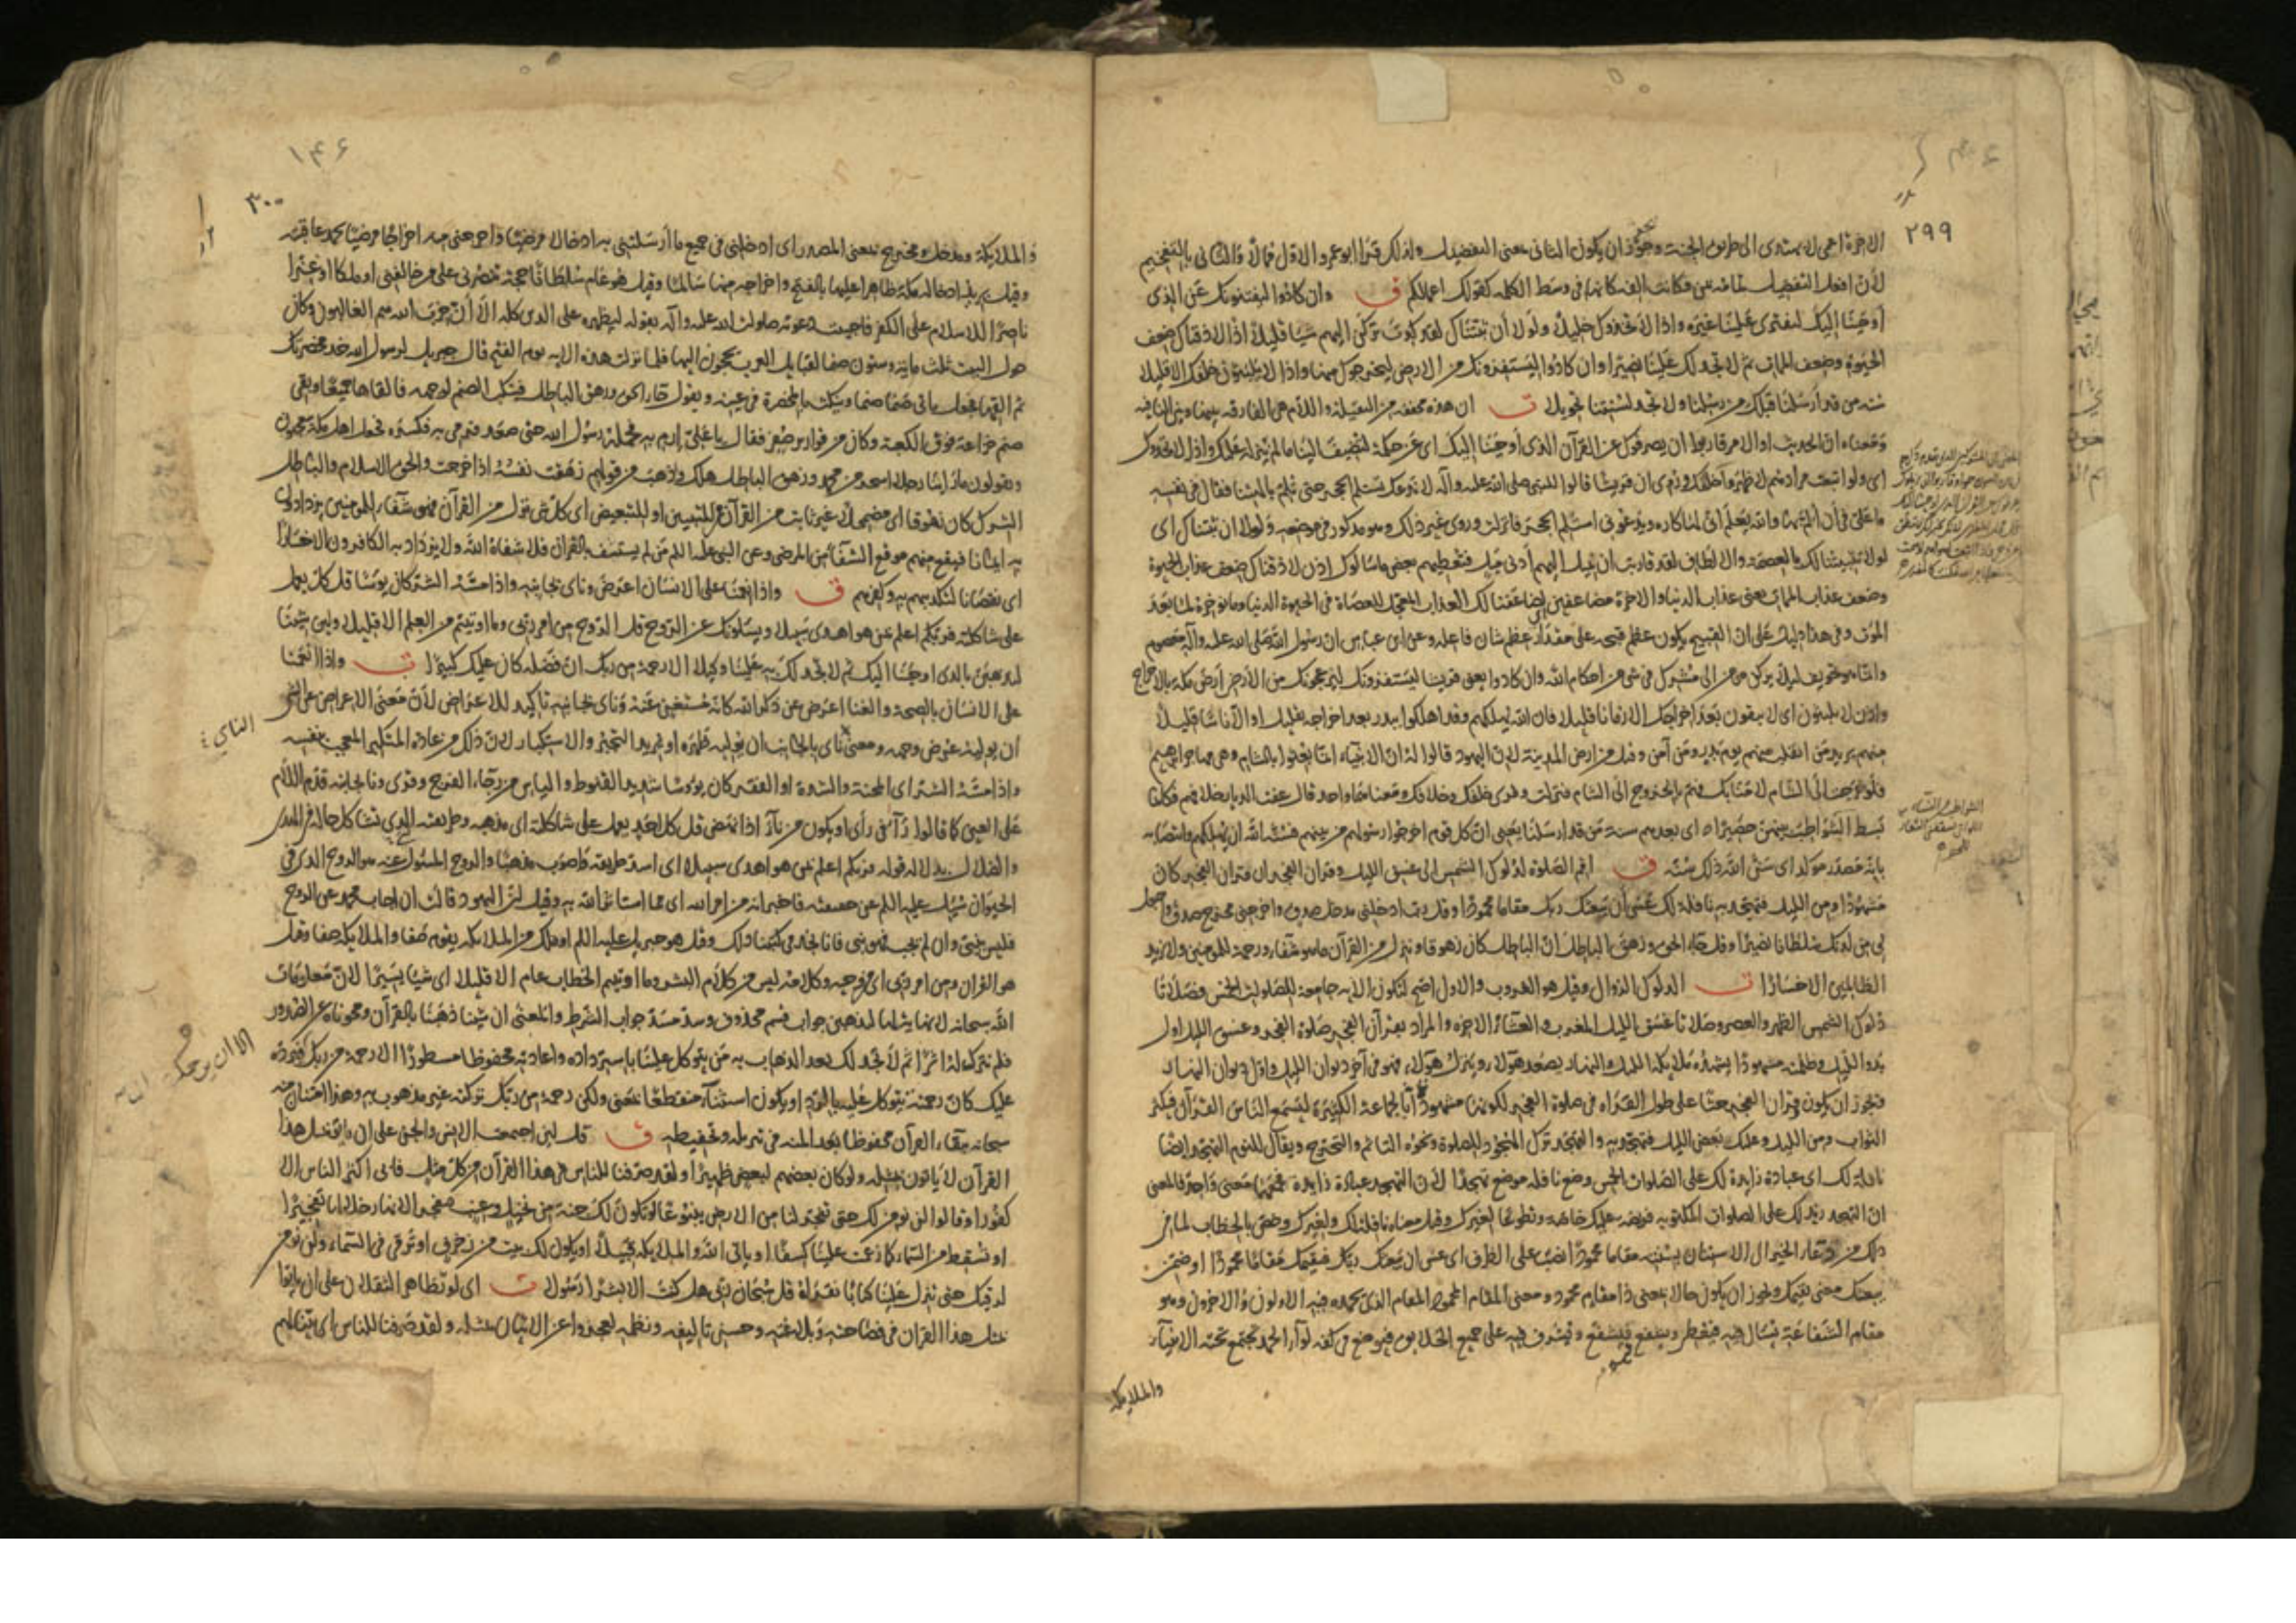 ٢٩٩
الاخرة اعمى لا يهتدى الى طريق الجنة وجوز ان يكون الثانى بمعنى التفضيل ولذلك قرا ابو عمرو الاول ممالا والثانى بالتفخيم
لأن افعل التفضيل تمامه بمن فكانت الفه كانها فى وسط الكلمة كقولك اعمالكم ق وان كادوا ليفتنونك عن الذى
أوحينا إليك لتفترى علينا غيره واذا لاتخذوك خليلا ولولا أن ثبتناك لقد كدت تركن إليهم شيا قليلا اذا لاذقناك ضعف
الحيوة وضعف الممات ثم لا تجد لك علينا نصيرا وان كادوا ليستفزونك من الارض ليخرجوك منها واذا لا يلبثون خلفك الا قليلا
سنة من قد أرسلنا قبلك من رسلنا ولا تجد لسنتنا تحويلا ت ان هذه مخففة من الثقيلة واللام هى الفارقة بينها وبين النافية
ومعناه ان الحديث او الامر قاربوا ان يصرفوك عن القرآن الذى أوحينا إليك اى عن حكمه لتضيف الينا ما لم ينزله عليك واذا لاتخذوك
اى ولو اتبعت مرادهم لاظهروا خلتك وروى ان قريشا قالوا للنبى صلى الله عليه وآله لا ندعك تستلم الحجر حتى تلم بالهتنا فقال فى نفسه
ما على فى أن ألم بها والله يعلم انى لها كاره ويدعونى استلم الحجر فانزلت وروى غير ذلك وهو مذكور فى موضعه ولولا ان ثبتناك اى
لولا تثبيتنا لك بالعصمة والالطاف لقد قاربت ان تميل اليهم أدنى ميل فتعطيهم بعض ما سالوك إذن لاذقناك ضعف عذاب الحيوة
وضعف عذاب الممات يعنى عذاب الدنيا والاخرة مضاعفين اى ضاعفنا لك العذاب المعجل للعصاة فى الحيوة الدنيا وما نؤخره لما بعد
الموت وفى هذا دليل على ان القبيح يكون عظم قبحه على مقدار عظم شان فاعله وعن ابن عباس ان رسول الله صلى الله عليه وآله معصوم
وانما هو تخويف ليلا يركن مؤمن الى مشرك فى شى من احكام الله وان كادوا يعنى قريشا ليستفزونك ليزعجونك من الأرض أرض مكة بالاخراج
واذن لا يلبثون اى لا يبقون بعد اخراجك الا زمانا قليلا فان الله يهلكهم وقد اهلكوا ببدر بعد اخراجه بقليل او الا ناسا قليلا
منهم يريد من انفلت منهم يوم بدر ومن آمن وقيل من ارض المدينة لان اليهود قالوا له ان الانبياء انما بعثوا بالشام وهى مهاجر ابراهيم
فلو خرجت الى الشام لامنا بك فهم بالخروج الى الشام فنزلت وقرى خلفك وخلافك ومعناهما واحد قال عفت الديار خلافهم فكانما
بسط الشواطب بينهن حصيرا اى بعدهم سنة من قد ارسلنا يعنى ان كل قوم اخرجوا رسولهم من بينهم فسنة الله ان يهلكهم وانتصابه
بانه مصدر موكد اى سن الله ذلك سنة ق اقم الصلوة لدلوك الشمس الى غسق الليل وقران الفجر ان قران الفجر كان
مشهودا ومن الليل فتهجد به نافلة لك عسى أن يبعثك ربك مقاما محمودا وقل رب ادخلنى مدخل صدق واخرجنى مخرج صدق واجعل
لى من لدنك سلطانا نصيرا وقل جاء الحق وزهق الباطل ان الباطل كان زهوقا وننزل من القرآن ما هو شفاء ورحمة للمومنين ولا يزيد
الظالمين الا خسارا ت الدلوك الزوال وقيل هو الغروب والاول اصح لتكون الاية جامعة للصلوات الخمس فصلاتا
دلوك الشمس الظهر والعصر وصلاتا غسق الليل المغرب والعشاء الاخرة والمراد بقرآن الفجر صلوة الفجر وغسق الليل اول
بدو الليل وظلمته مشهودا يشهده ملائكة الليل والنهار يصعد هولاء وينزل هولاء فهو فى آخر ديوان الليل واول ديوان النهار
وتجوز ان يكون وقران الفجر حثا على طول القراءة فى صلوة الفجر لكونها مشهودة بالجماعة الكثيرة ليسمع الناس القرآن فيكثر
الثواب ومن الليل وعليك بعض الليل فتهجد به والتهجد ترك الهجود للصلوة ونحوه التاثم والتحرج ويقال للنوم التهجد ايضا
نافلة لك اى عبادة زايدة لك على الصلوات الخمس وضع نافلة موضع تهجدا لأن التهجد عبادة زايدة فجمعهما معنى واحد والمعنى
ان التهجد زيد لك على الصلوات المكتوبه فريضه عليك خاصة وتطوعا لغيرك وقيل معناه نافلة لك ولغيرك وخص بالخطاب لما فى
ذلك من دعاء الخير الى الاستنان بسنته مقاما محمودا نصب على الظرف اى عسى ان يبعثك ربك فيقيمك مقاما محمودا او ضمن
يبعثك معنى يقيمك ويجوز ان يكون حالا بمعنى ذا مقام محمود ومعنى المقام المحمود المقام الذى يحمده فيه الاولون والاخرون وهو
مقام الشفاعة تسال فيه فتعطى وتشفع فتشفع وتشرف فيه على جميع الخلايق فيوضع فى كفه لواء الحمد تجتمع تحته الانبياء
والملايكة
١۴۶
٣٠٠
والملايكة ومدخل ومخرج بمعنى المصدر اى ادخلنى فى جميع ما أرسلتنى به ادخالا مرضيا واخرجنى منه اخراجا مرضيا تحمد عاقبته
وقيل يريد ادخاله مكة ظاهرا عليها بالفتح واخراجه منها سالما وقيل هو عام سلطانا حجة تنصرنى على من خالفنى او ملكا او عزا
ناصرا للاسلام على الكفر فاجيبت دعوته صلوات الله عليه وآله بقوله ليظهره على الدين كله الا أن حزب الله هم الغالبون وكان
حول البيت ثلث ماية وستون صنما لقبايل العرب يحجون اليها فلما نزلت هذه الاية يوم الفتح قال جبريل لرسول الله خذ مخصرتك
ثم القها فجعل ياتى صنما صنما وينكت بالمخصرة فى عينه ويقول جاء الحق وزهق الباطل فينكب الصنم لوجهه فالقاها جميعا وبقى
صنم خزاعة فوق الكعبة وكان من قوارير صفر فقال يا على إرم به فحمله رسول الله حتى صعد فرمى به فكسره فجعل اهل مكة يتعجبون
ويقولون ما راينا رجلا اسحر من محمد وزهق الباطل هلك وذهب من قولهم زهقت نفسه اذا خرجت والحق الاسلام والباطل
الشرك كان زهوقا اى مضمحلا غير ثابت من القرآن من للتبيين او للتبعيض اى كل شى نزل من القرآن فهو شفاء للمومنين يزدادون
به ايمانا فيقع منهم موقع الشفاء من المرضى وعن النبى عليه السلام من لم يستشف بالقران فلا شفاه الله ولا يزداد به الكافرون الا خسارا
اى نقصانا لتكذيبهم به وكفرهم ق واذا انعمنا على الانسان اعرض وناى بجانبه واذا مسه الشر كان يوسا قل كل يعمل
على شاكلته فربكم اعلم بمن هو اهدى سبيلا ويسلونك عن الروح قل الروح من امر ربى وما اوتيتم من العلم الا قليلا ولين شئنا
لنذهبن بالذى اوحينا اليك ثم لا تجد لك به علينا وكيلا الا رحمة من ربك ان فضله كان عليك كبيرا ت واذا انعمنا
على الانسان بالصحة والغنا اعرض عن ذكر الله كانه مستغن عنه وناى بجانبه تاكيد للاعراض لأن معنى الاعراض عن الشى
أن يوليه عرض وجهه ومعنى ناى بالجانب ان يوليه ظهره او يريد التجبر والاستكبار لان ذلك من عادة المتكبر المعجب بنفسه
الناي
واذا مسه الشر اى المحنة والشدة او الفقر كان يؤوسا شديد القنوط والياس من رجاء الفرج وقرى وناء بجانبه قدم اللام
على العين كما قالوا راء فى رأى او يكون من ناء اذا نهض قل كل احد يعمل على شاكلته اى مذهبه وطريقته الذى تشاكل حاله فى الهدى
والضلال يدل له قوله فربكم اعلم بمن هو اهدى سبيلا اى اسد طريقة واصوب مذهبا والروح المسئول عنه هو الروح الذى فى
الحيوان سئل عليه السلام عن حقيقته فاخبر انه من امر الله اى مما استاثر الله به وقيل ان اليهود قالت ان اجاب محمد عن الروح
فليس بنبى وان لم يجب فهو نبى فانا نجد فى كتبنا ذلك وقيل هو جبريل عليه السلام او ملك من الملائكة يقوم صفا والملايكة صفا وقيل
هو القران ومن امر ربى اى من وحيه وكلامه ليس من كلام البشر وما اوتيتم الخطاب عام الا قليلا اى شيا يسيرا لان معلومات
الله سبحانه لا نهاية لها لنذهبن جواب قسم محذوف وسد مسد جواب الشرط والمعنى ان شينا ذهبنا بالقرآن ومحوناه عن الصدور
فلم نترك له اثرا ثم لا تجد لك بعد الذهاب به من يتوكل علينا باسترداده واعادته محفوظا مسطورا الا رحمة من ربك فيرده
عليك كان رحمته تتوكل عليه بالرد او يكون استثناء منقطعا بمعنى ولكن رحمة من ربك تركته غير مذهوب به وهذا امتنان منه
سبحانه ببقاء القرآن محفوظا بعد المنة فى تنزيله وتحفيظه ق قل لين اجتمعت الانس والجن على ان ياتوا بمثل هذا
القرآن لا ياتون بمثله ولو كان بعضهم لبعض ظهيرا ولقد صرفنا للناس فى هذا القرآن من كل مثل فابى اكثر الناس الا
كفورا وقالوا لن نومن لك حتى تفجر لنا من الارض ينبوعا او تكون لك جنة من نخيل وعنب فتفجر الانهار خلالها تفجيرا
او تسقط من السماء كما زعمت علينا كسفا او ياتى الله والملائكة قبيلا او يكون لك بيت من زخرف او ترقى فى السماء ولن نومن
لرقيك حتى تنزل علينا كتابا نقرؤه قل سبحان ربى هل كنت الا بشرا رسولا ت اى لو تظاهر الثقلان على ان ياتوا
بمثل هذا القرآن فى فصاحته وبلاغته وحسن تاليفه ونظمه لعجزوا عن الاتيان بمثله ولقد صرفنا للناس اى بينا لهم